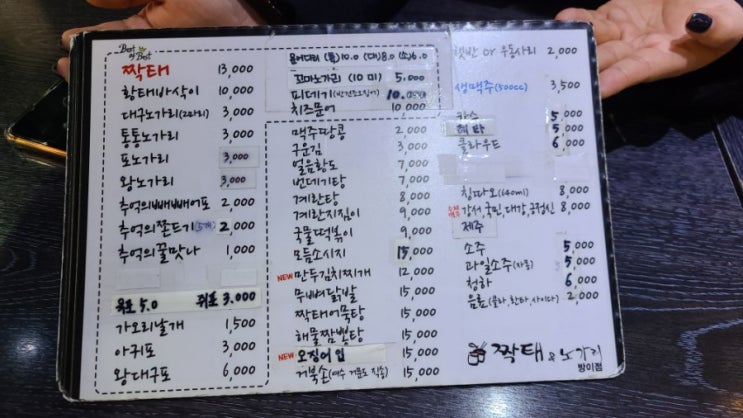 Best of Best
짝태 13,000
황태바삭이 10,000
대구노가리(2마리) 3,000
통통노가리 3,000
포노가리 3,000
왕노가리 3,000
추억의빼빼어포 2,000
추억의쫀드기(5개) 2,000
추억의꿀맛나 1,000
육포 5.0 쥐포 3,000
가오리날개 1,500
아귀포 3,000
왕대구포 6,000
꼬마노가리 (10미) 5,000
피데기(반건조오징어) 10.0
치즈문어 10,000
맥주땅콩 2,000
구운김 3,000
얼음황도 7,000
번데기탕 7,000
계란탕 8,000
계란지짐이 9,000
국물떡볶이 9,000
모듬소시지 15,000
NEW 만두김치찌개 12,000
무뼈닭발 15,000
짝태어묵탕 15,000
해물짬뽕탕 15,000
NEW 오징어입 15,000
거북손(여수 거문도 직송) 15,000
햇반 or 우동사리 2,000
생맥주(500cc) 3,500
카스 5,000
테라 5,000
클라우드 6,000
칭따오(640ml) 8,000
강서,국민,대강,긍정신 8,000
제주
소주 5,000
과일소주(자몽) 5,000
청하 6,000
음료(콜라,환타,사이다) 2,000
짝태 & 노가리
방이점